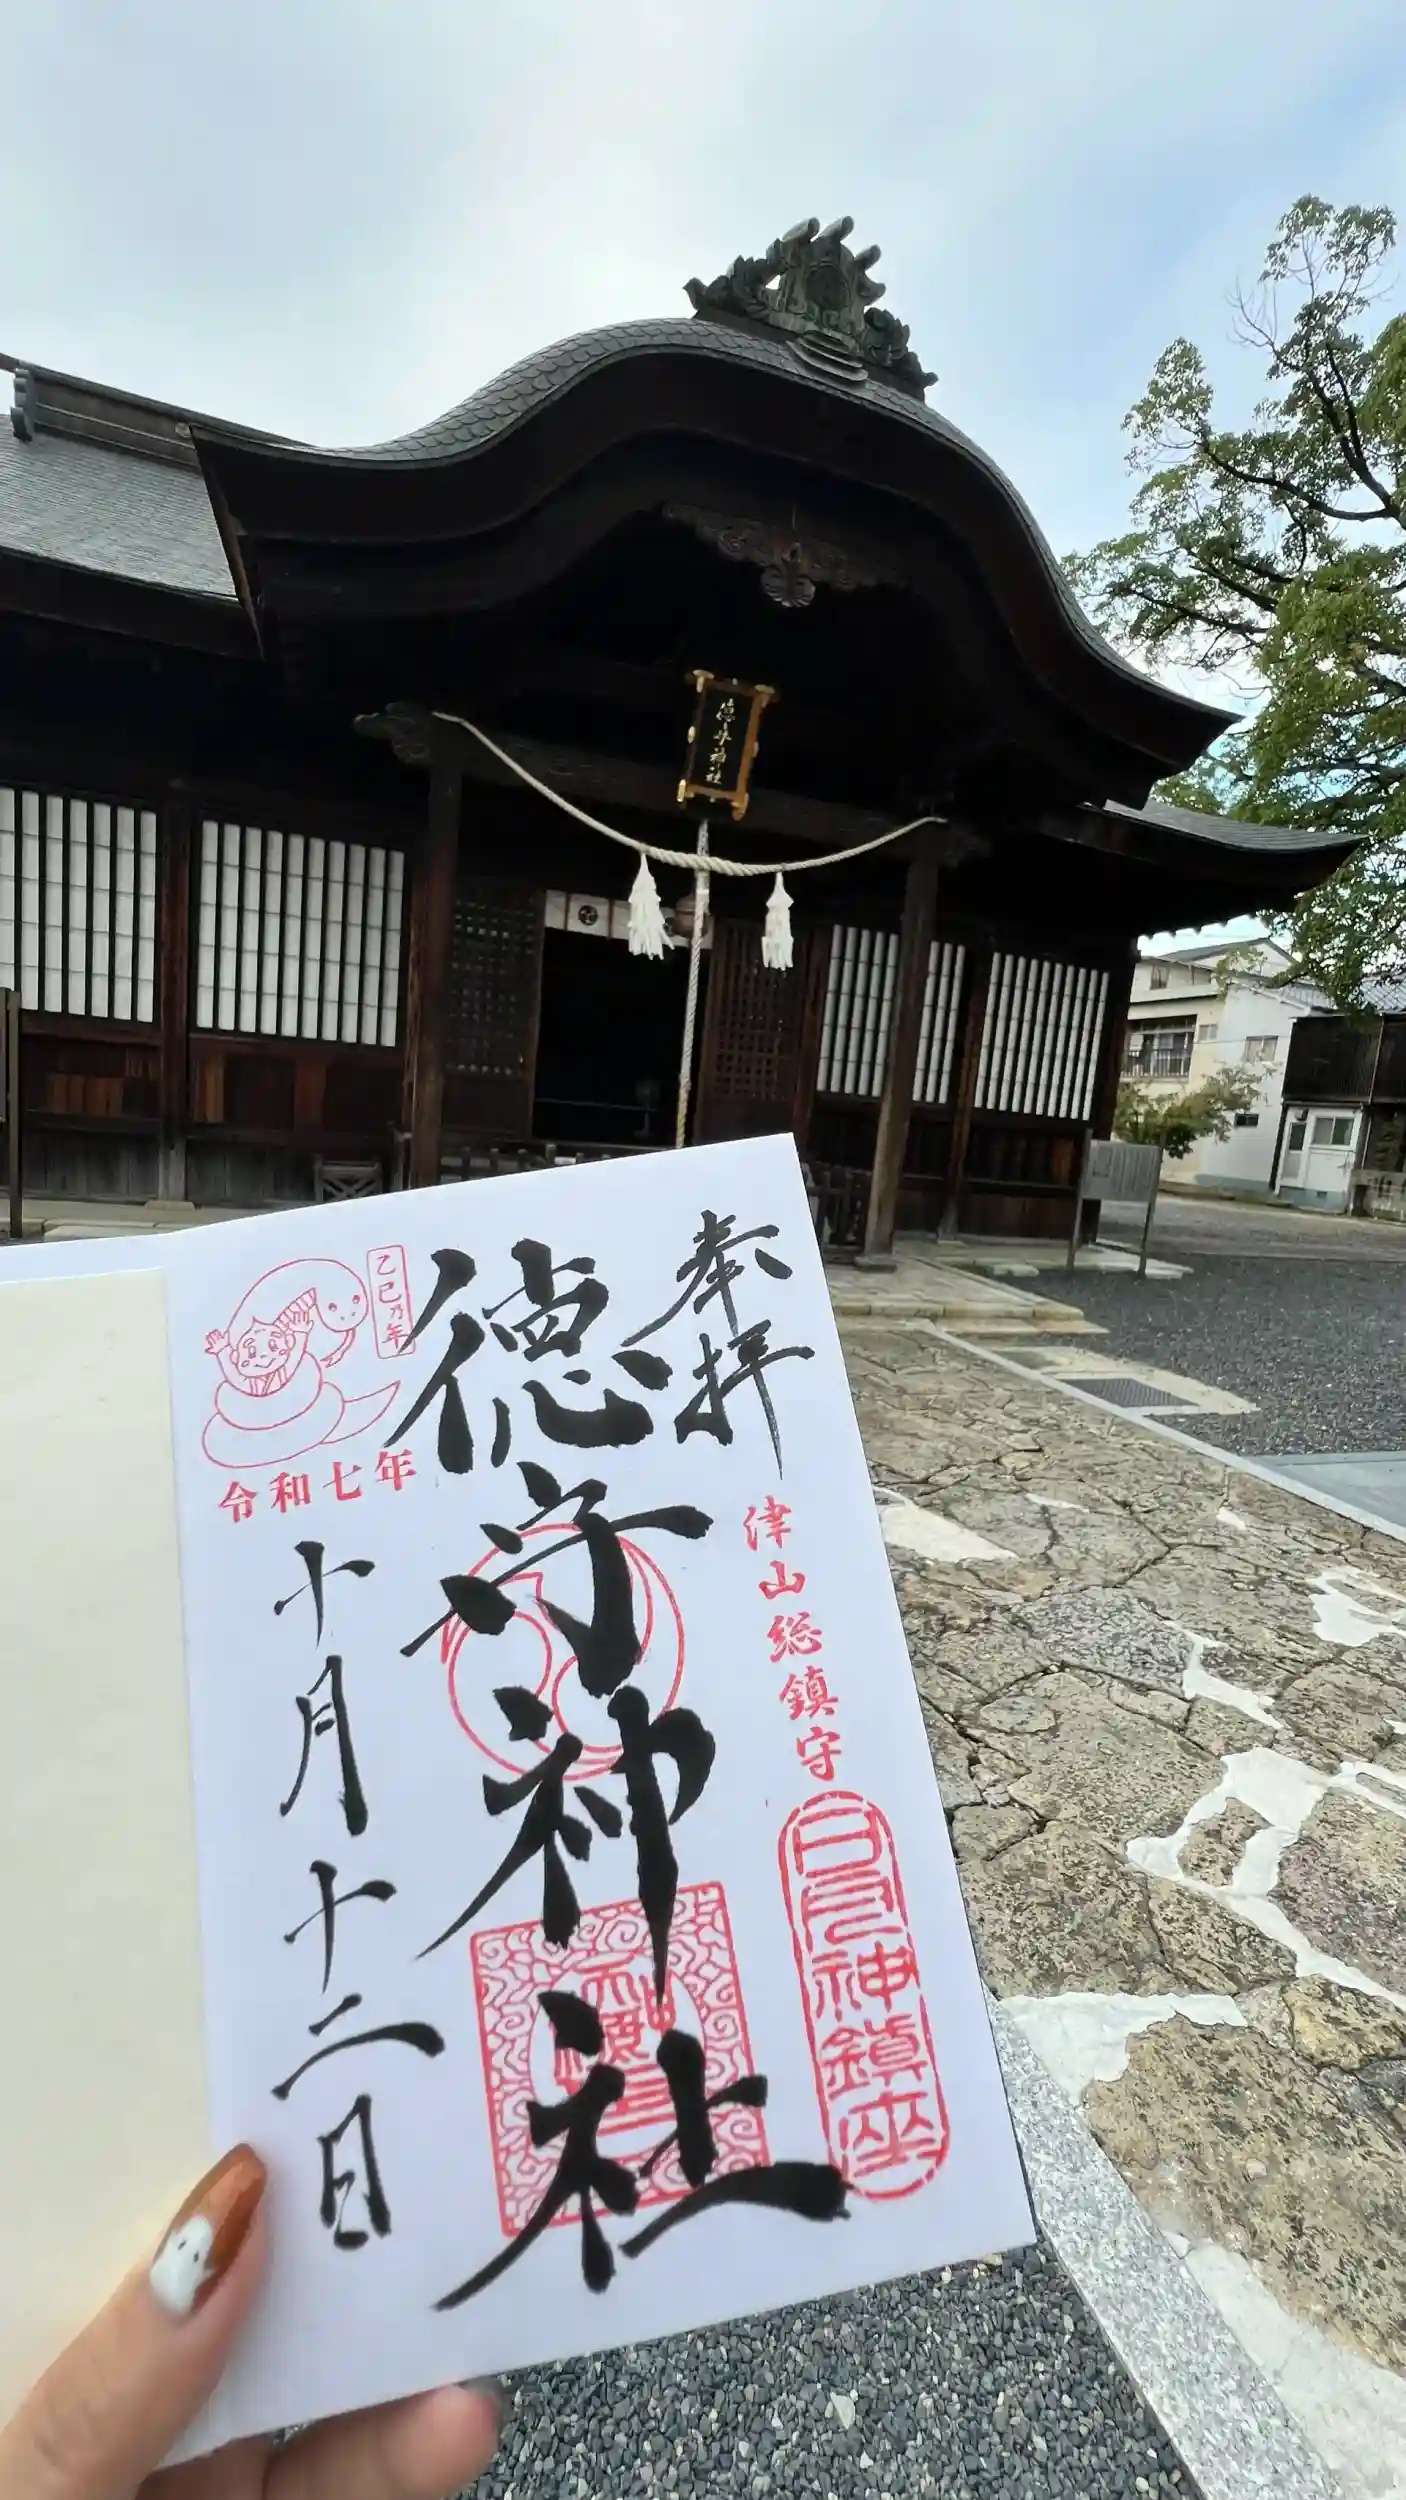 徳守神社
奉拝
津山総鎮守
日之神鎮座
徳守神社
乙巳乃年
令和七年
十月十二日